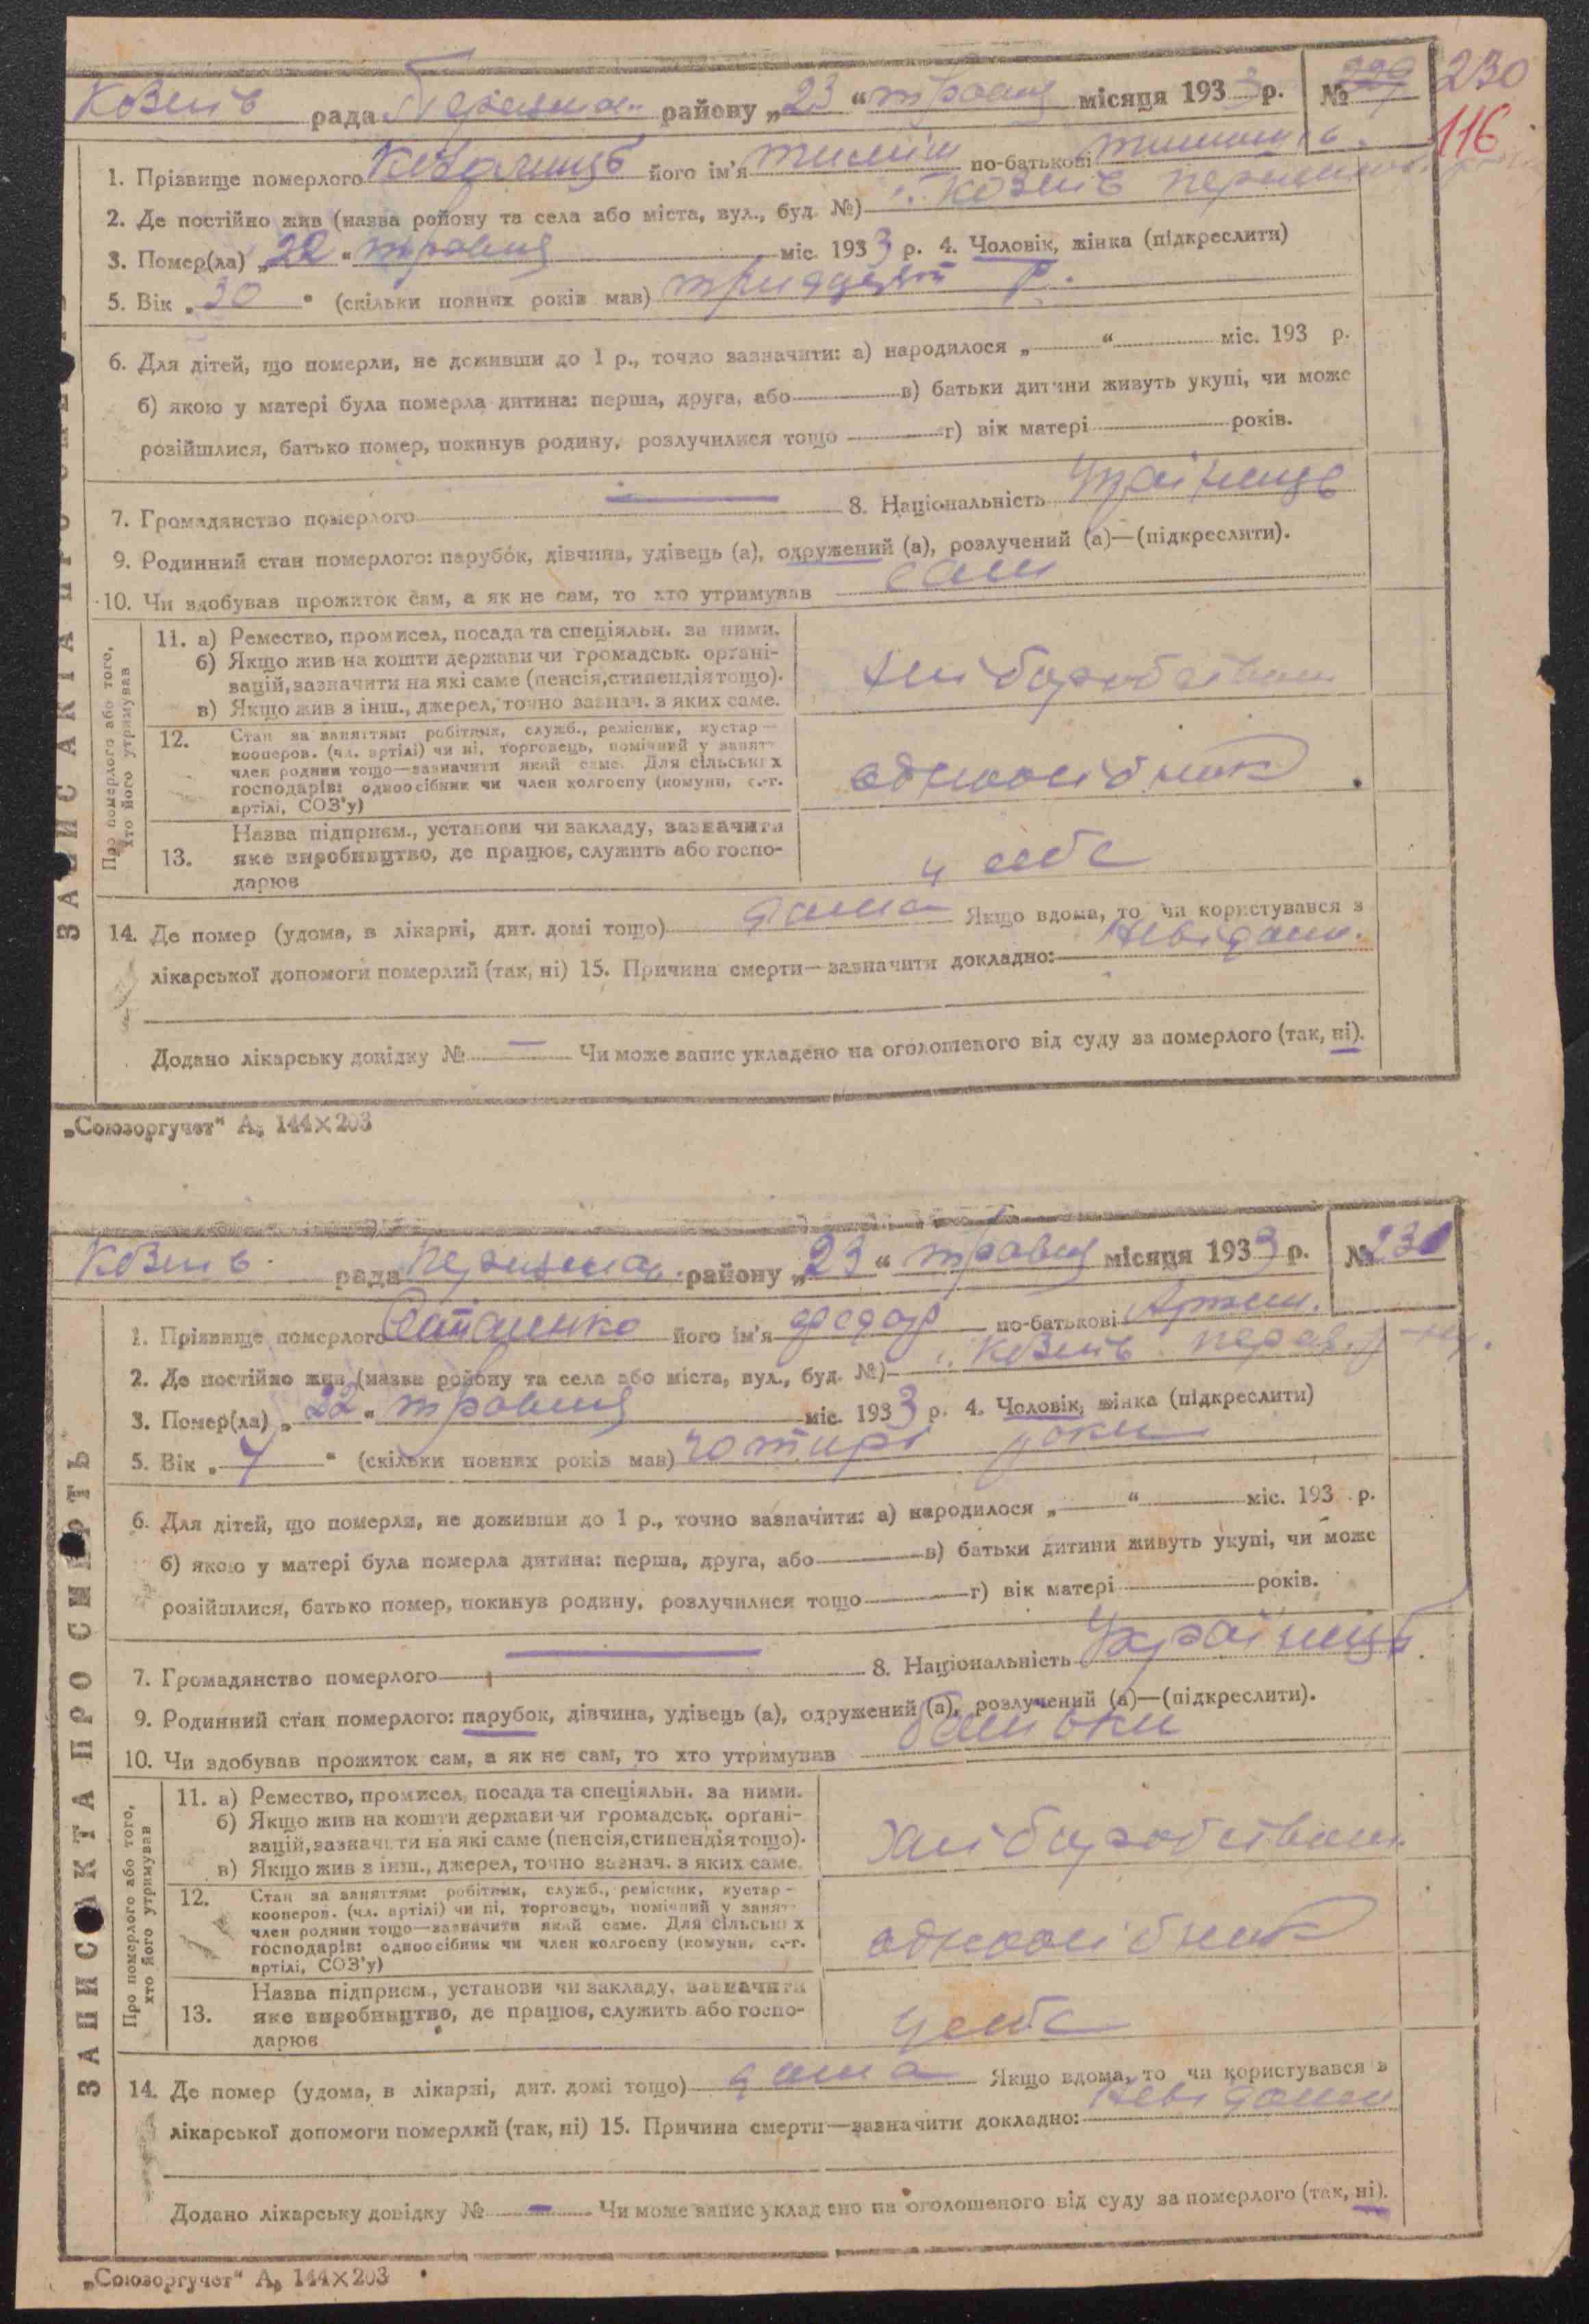 230
116
Козиів рада района району „23“ травня місяця 1933 р. № 229
1. Прізвище померлого його ім'я по-батькові
2. Де постійно жив (назва району та села або міста, вул., буд. №) Козиів
3. Помер(ла) „22“ травня міс. 1933 р. 4. Чоловік, жінка (підкреслити)
5. Вік „30“ (скільки повних років мав) тридцят р.
6. Для дітей, що померли, не доживши до 1 р., точно зазначити: а) народилося „ “ міс. 193 р.
б) якою у матері була померла дитина: перша, друга, або в) батьки дитини живуть укупі, чи може
розійшлися, батько помер, покинув родину, розлучилися тощо г) вік матері років.
7. Громадянство померлого — 8. Національність Українець
9. Родинний стан померлого: парубок, дівчина, удівець (а), одружений (а), розлучений (а)—(підкреслити).
10. Чи здобував прожиток сам, а як не сам, то хто утримував сам
ЗАПИС АКТА ПРО СМЕРТЬ
Про померлого або того, хто його утримував
11. а) Ремество, промисел, посада та спеціяльн. за ними.
б) Якщо жив на кошти держави чи громадськ. органі-
зацій, зазначити на які саме (пенсія, стипендія тощо).
в) Якщо жив з інш., джерел, точно зазнач. з яких саме.
хліборобством
12. Стан за заняттям: робітник, служб., ремісник, кустар—
кооперов. (чл. артілі) чи ні, торговець, помічний у занят.
член родини тощо—зазначити який саме. Для сільських
господарів: одноосібник чи член колгоспу (комуни, с.-г.
артілі, СОЗ'у)
одноосібник
13. Назва підприєм., установи чи закладу, зазначити
яке виробництво, де працює, служить або госпо-
дарює
у себе
14. Де помер (удома, в лікарні, дит. домі тощо) дома Якщо вдома, то чи користувався з
лікарської допомоги померлий (так, ні) 15. Причина смерти—зазначити докладно: Невідома
Додано лікарську довідку № — Чи може запис укладено на оголошеного від суду за померлого (так, ні).
„Союзоргучет“ А₅ 144×203
Козиів рада району „23“ травня місяця 1933 р. № 230
1. Прізвище померлого його ім'я Федор по-батькові
2. Де постійно жив (назва району та села або міста, вул., буд. №) Козиів
3. Помер(ла) „22“ травня міс. 1933 р. 4. Чоловік, жінка (підкреслити)
5. Вік „4“ (скільки повних років мав) чотирі роки
6. Для дітей, що померли, не доживши до 1 р., точно зазначити: а) народилося „ “ міс. 193 р.
б) якою у матері була померла дитина: перша, друга, або в) батьки дитини живуть укупі, чи може
розійшлися, батько помер, покинув родину, розлучилися тощо г) вік матері років.
7. Громадянство померлого — 8. Національність Українець
9. Родинний стан померлого: парубок, дівчина, удівець (а), одружений (а), розлучений (а)—(підкреслити).
10. Чи здобував прожиток сам, а як не сам, то хто утримував батьки
ЗАПИС АКТА ПРО СМЕРТЬ
Про померлого або того, хто його утримував
11. а) Ремество, промисел, посада та спеціяльн. за ними.
б) Якщо жив на кошти держави чи громадськ. органі-
зацій, зазначити на які саме (пенсія, стипендія тощо).
в) Якщо жив з інш., джерел, точно зазнач. з яких саме.
хліборобством
12. Стан за заняттям: робітник, служб., ремісник, кустар—
кооперов. (чл. артілі) чи ні, торговець, помічний у занят.
член родини тощо—зазначити який саме. Для сільських
господарів: одноосібник чи член колгоспу (комуни, с.-г.
артілі, СОЗ'у)
одноосібник
13. Назва підприєм., установи чи закладу, зазначити
яке виробництво, де працює, служить або госпо-
дарює
у себе
14. Де помер (удома, в лікарні, дит. домі тощо) дома Якщо вдома, то чи користувався з
лікарської допомоги померлий (так, ні) 15. Причина смерти—зазначити докладно: Невідома
Додано лікарську довідку № — Чи може запис укладено на оголошеного від суду за померлого (так, ні).
„Союзоргучет“ А₅ 144×203